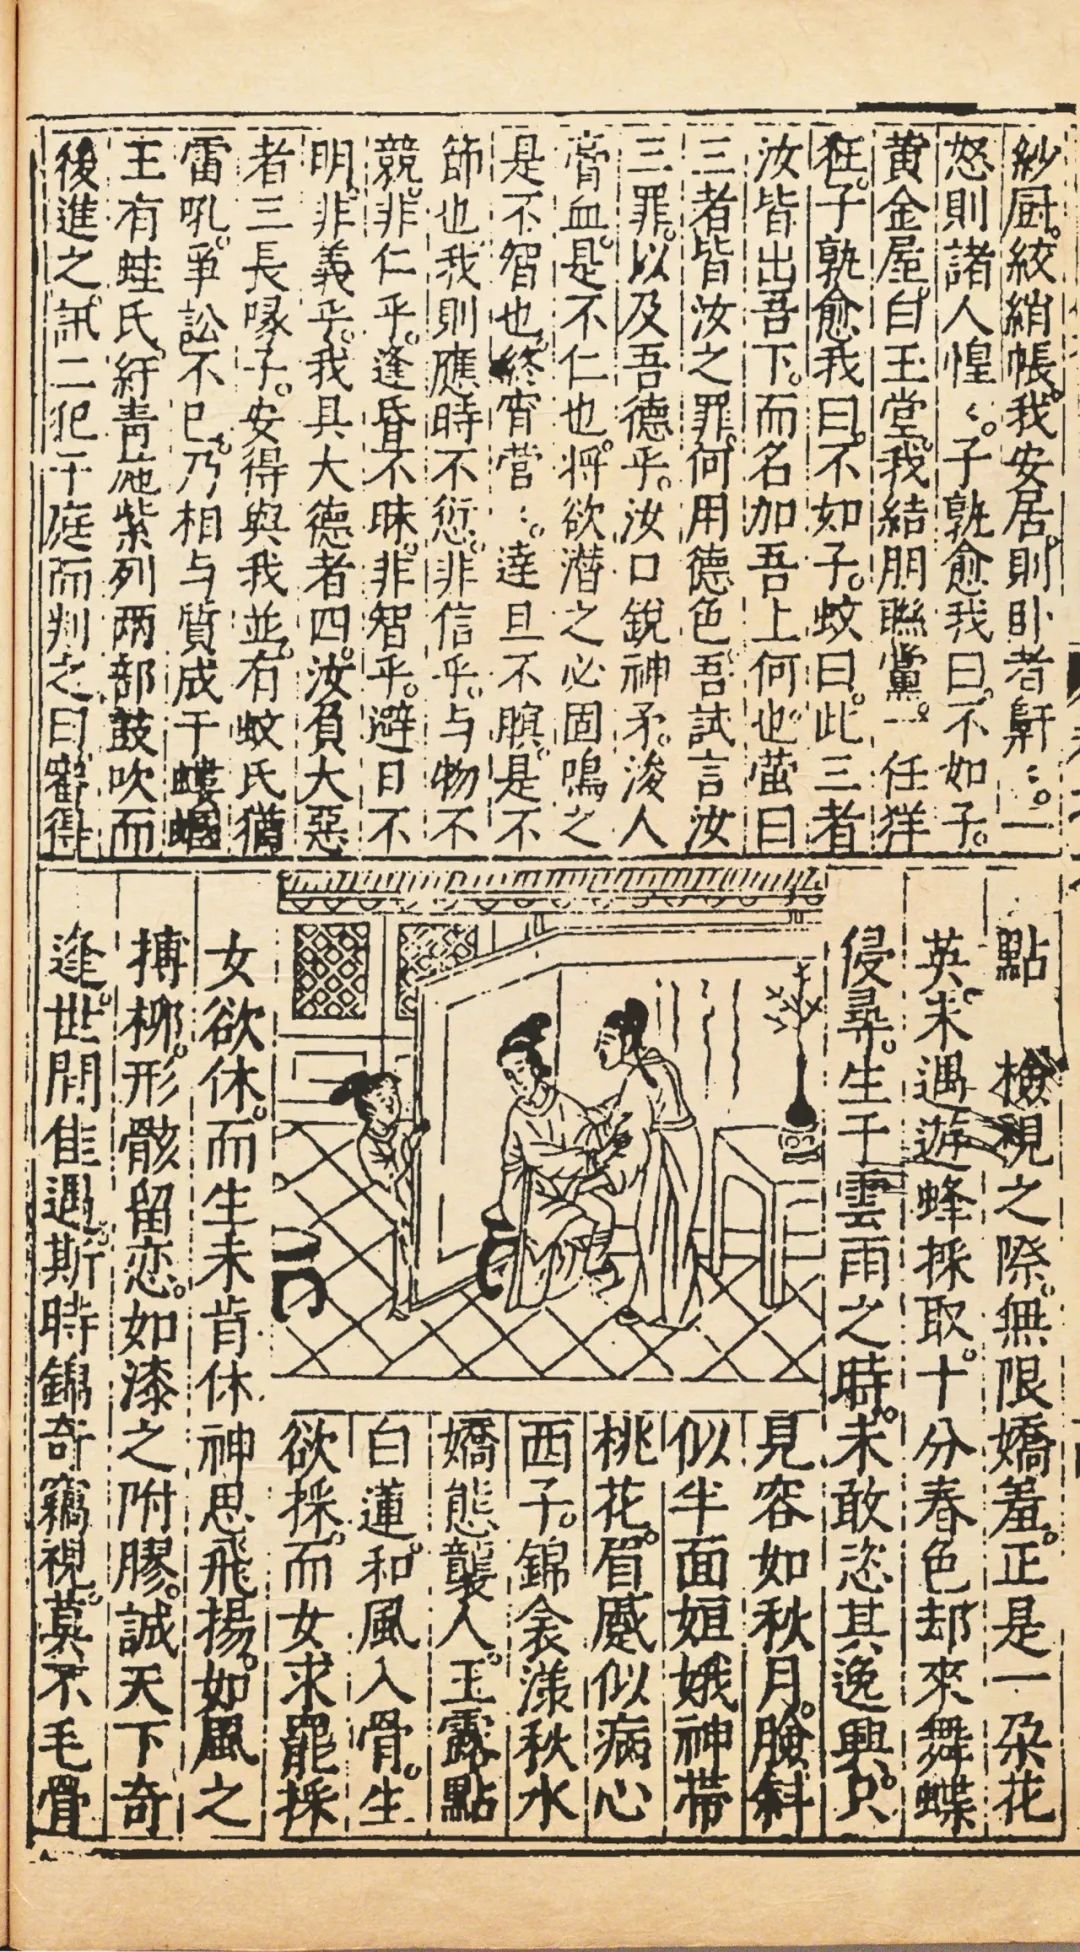 紗厨。絞綃帳。我安居。則卧者鼾〻。一
怒則諸人惶〻。子孰愈我曰。不如子。
黄金屋。白玉堂。我結朋聯黨。一任徉
狂。子孰愈我曰。不如子。蚊曰。此三者
汝皆出吾下。而名加吾上何也。萤曰
三者皆汝之罪。何用德色。吾試言汝
三罪。以及吾德乎。汝口銳神矛。浚人
膏血。是不仁也。將欲潛之必固鳴之
是不智也。終宵营〻。達旦不瞑。是不
節也。我則應時不愆。非信乎。与物不
競。非仁乎。逢昏不昧。非智乎。避日不
明。非義乎。我具大德者四。汝負大惡
者三長喙子。安得與我並。有蚊氏猶
雷吼。爭訟不已。乃相与質成于螻蟈
王有蛙氏。紆青拖紫列两部鼓吹而
後進之。訊二犯于庭而判之曰。審得
點　檢視之際。無限嬌羞。正是一朶花
英。未遇遊蜂採取。十分春色却來舞蝶
侵尋。生于雲雨之時。未敢恣其逸興。只
見容如秋月。臉斜
似半面姮娥神帶
桃花。眉蹙似病心
西子。錦衾漾秋水
嬌態襲人。玉露點
白蓮。和風入骨。生
欲採。而女求罷採
女欲休。而生未肯休神思飛揚。如風之
搏柳。形骸留恋。如漆之附膠。誠天下奇
逢。世間佳遇。斯時錦奇竊視。莫不毛骨